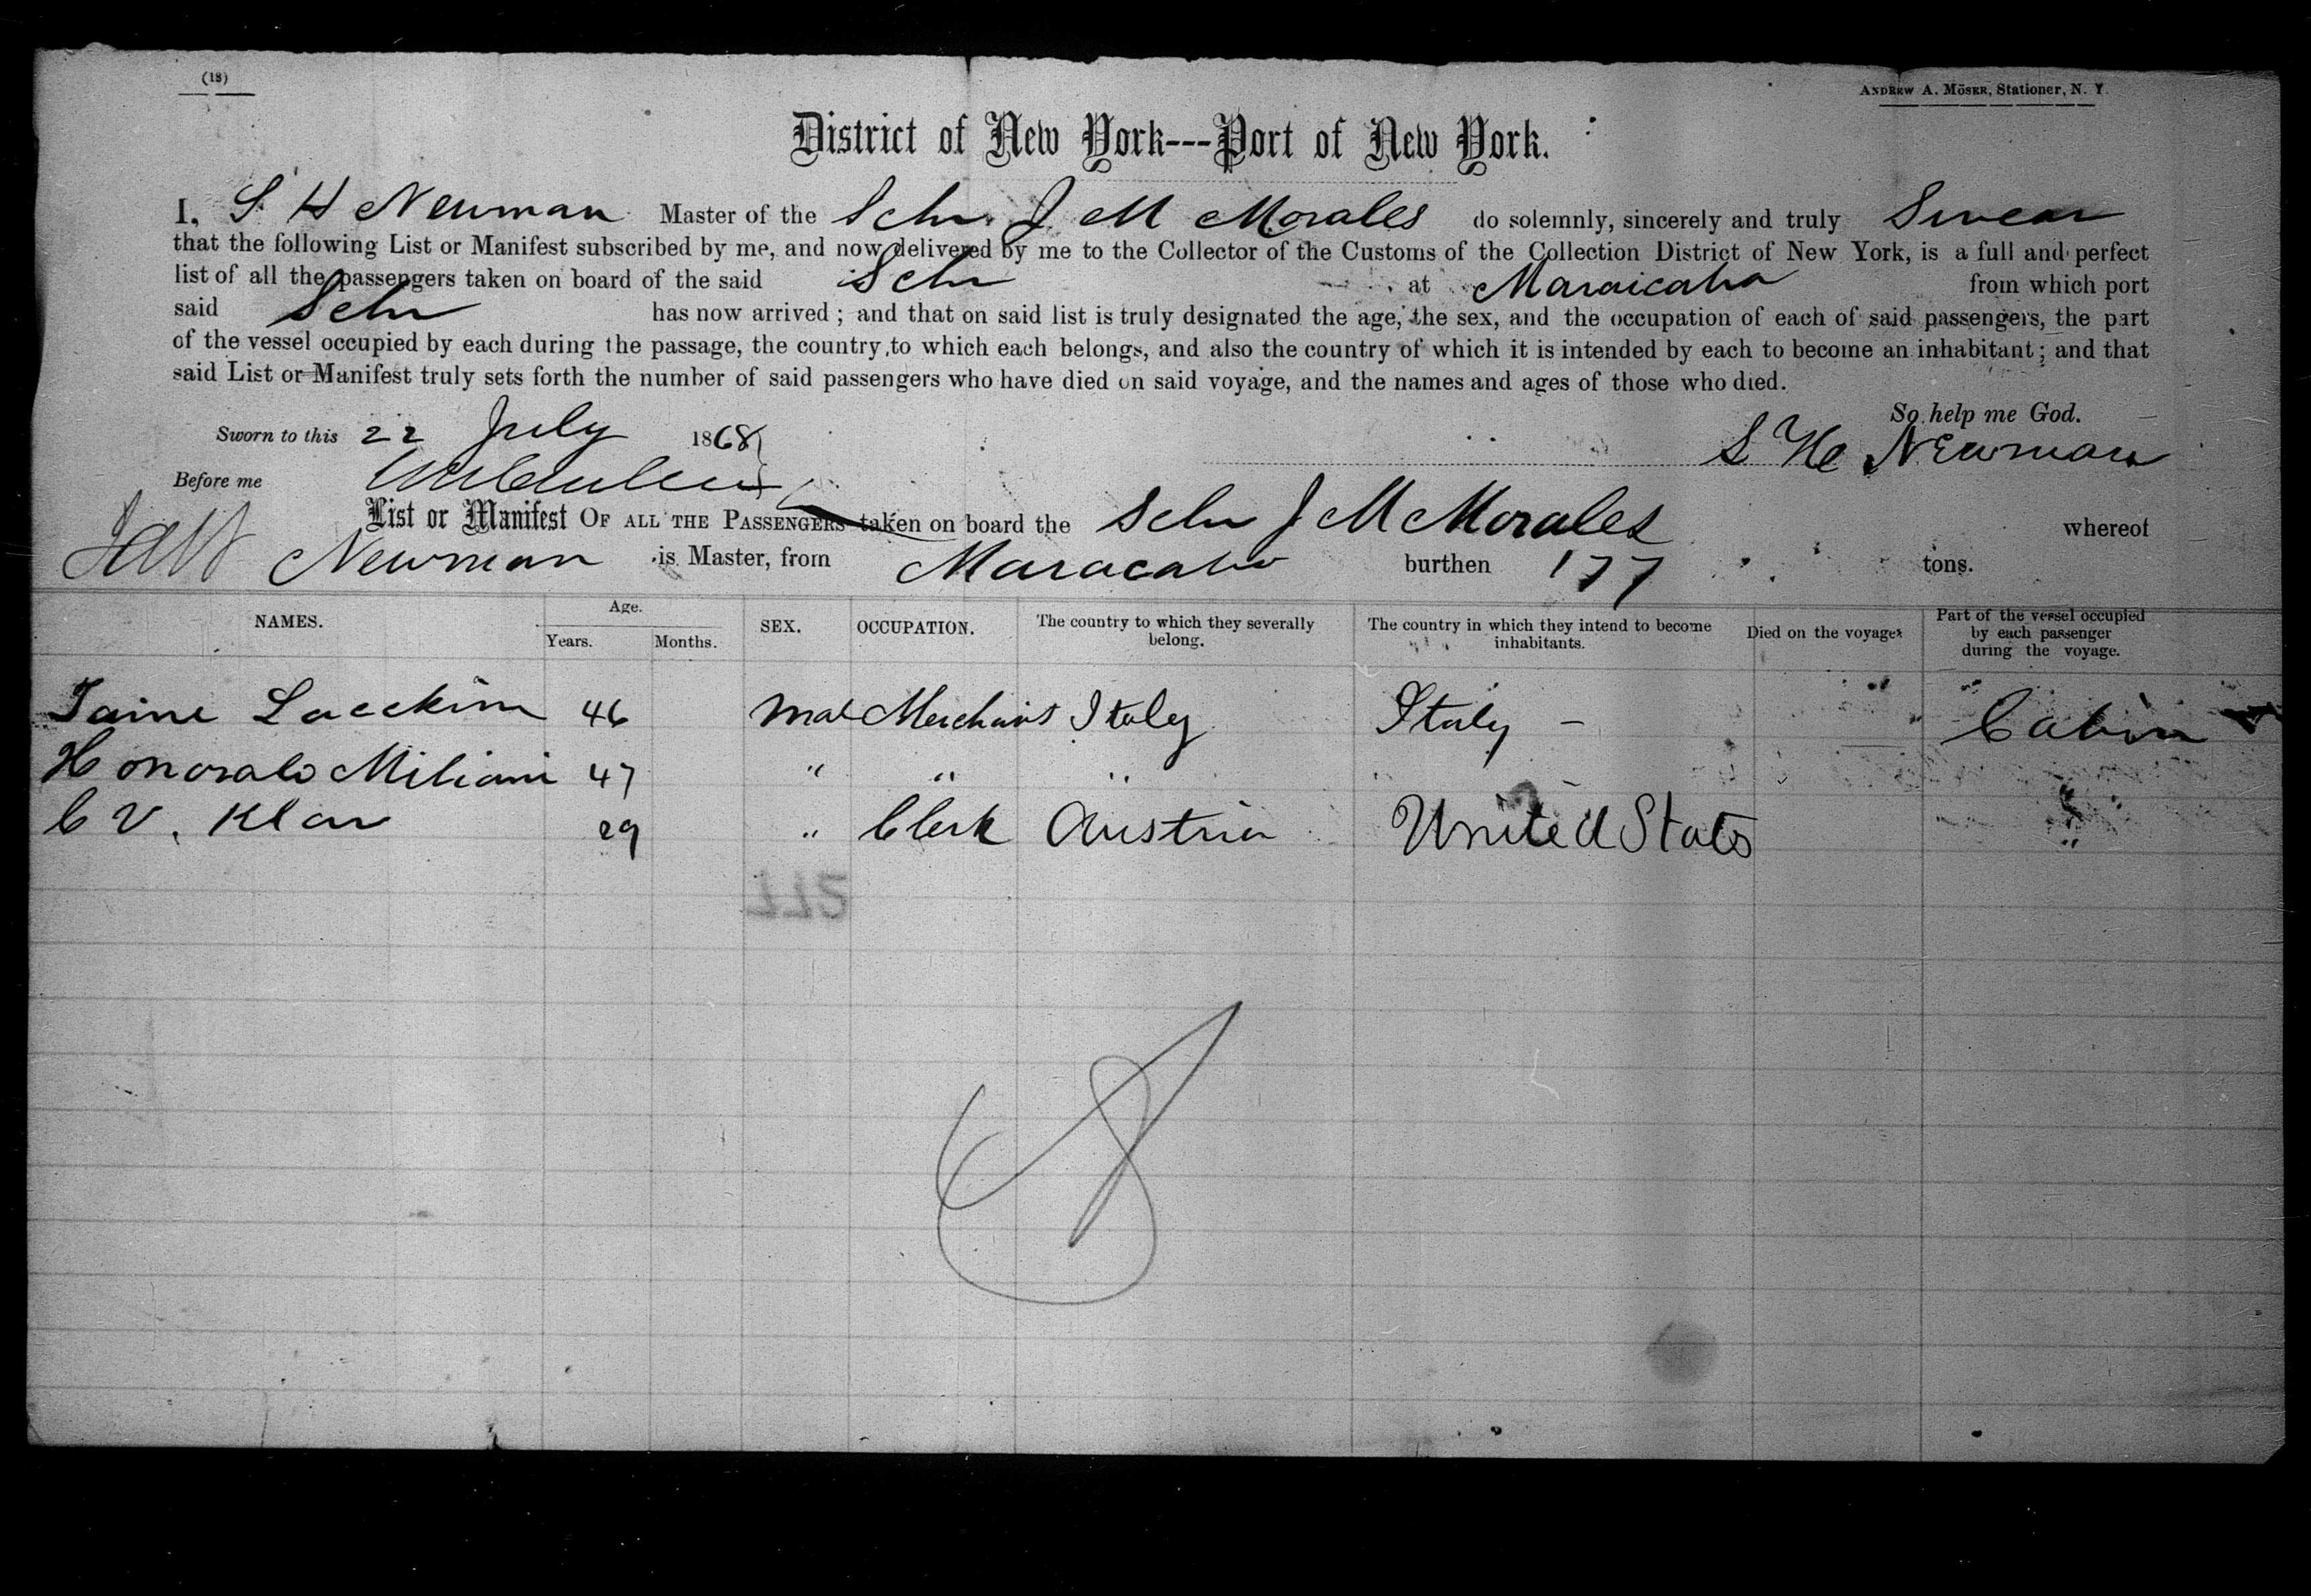 (18)
ANDREW A. MÖSER, Stationer, N. Y.
District of New York---Port of New York.
I. S. H Newman Master of the Schr. J M Morales do solemnly, sincerely and truly Swear
that the following List or Manifest subscribed by me, and now delivered by me to the Collector of the Customs of the Collection District of New York, is a full and perfect
list of all the passengers taken on board of the said Schr at Maraicabo from which port
said Schr has now arrived ; and that on said list is truly designated the age, the sex, and the occupation of each of said passengers, the part
of the vessel occupied by each during the passage, the country to which each belongs, and also the country of which it is intended by each to become an inhabitant ; and that
said List or Manifest truly sets forth the number of said passengers who have died on said voyage, and the names and ages of those who died.
So help me God.
Sworn to this 22 July 1868 S H Newman
Before me
List or Manifest OF ALL THE PASSENGERS taken on board the Schr J M Morales whereof
Newman is Master, from Maracabo burthen 177 tons.
NAMES. Age. Years. Months. SEX. OCCUPATION. The country to which they severally belong. The country in which they intend to become inhabitants. Died on the voyage. Part of the vessel occupied by each passenger during the voyage.
Jaime Lucckim 46 Mal Merchant Italy Italy – Cabin
Honorato Miliani 47 " " " "
C V. Klar 29 " Clerk Austria United States "